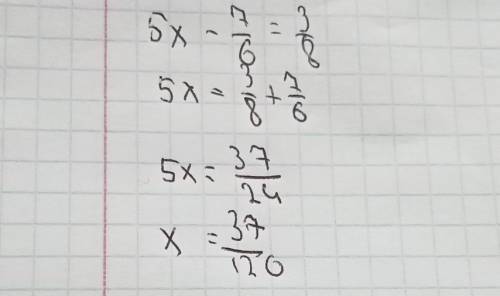 5x - 7/6 = 3/8
5x = 3/8 + 7/6
5x = 37/24
x = 37/120